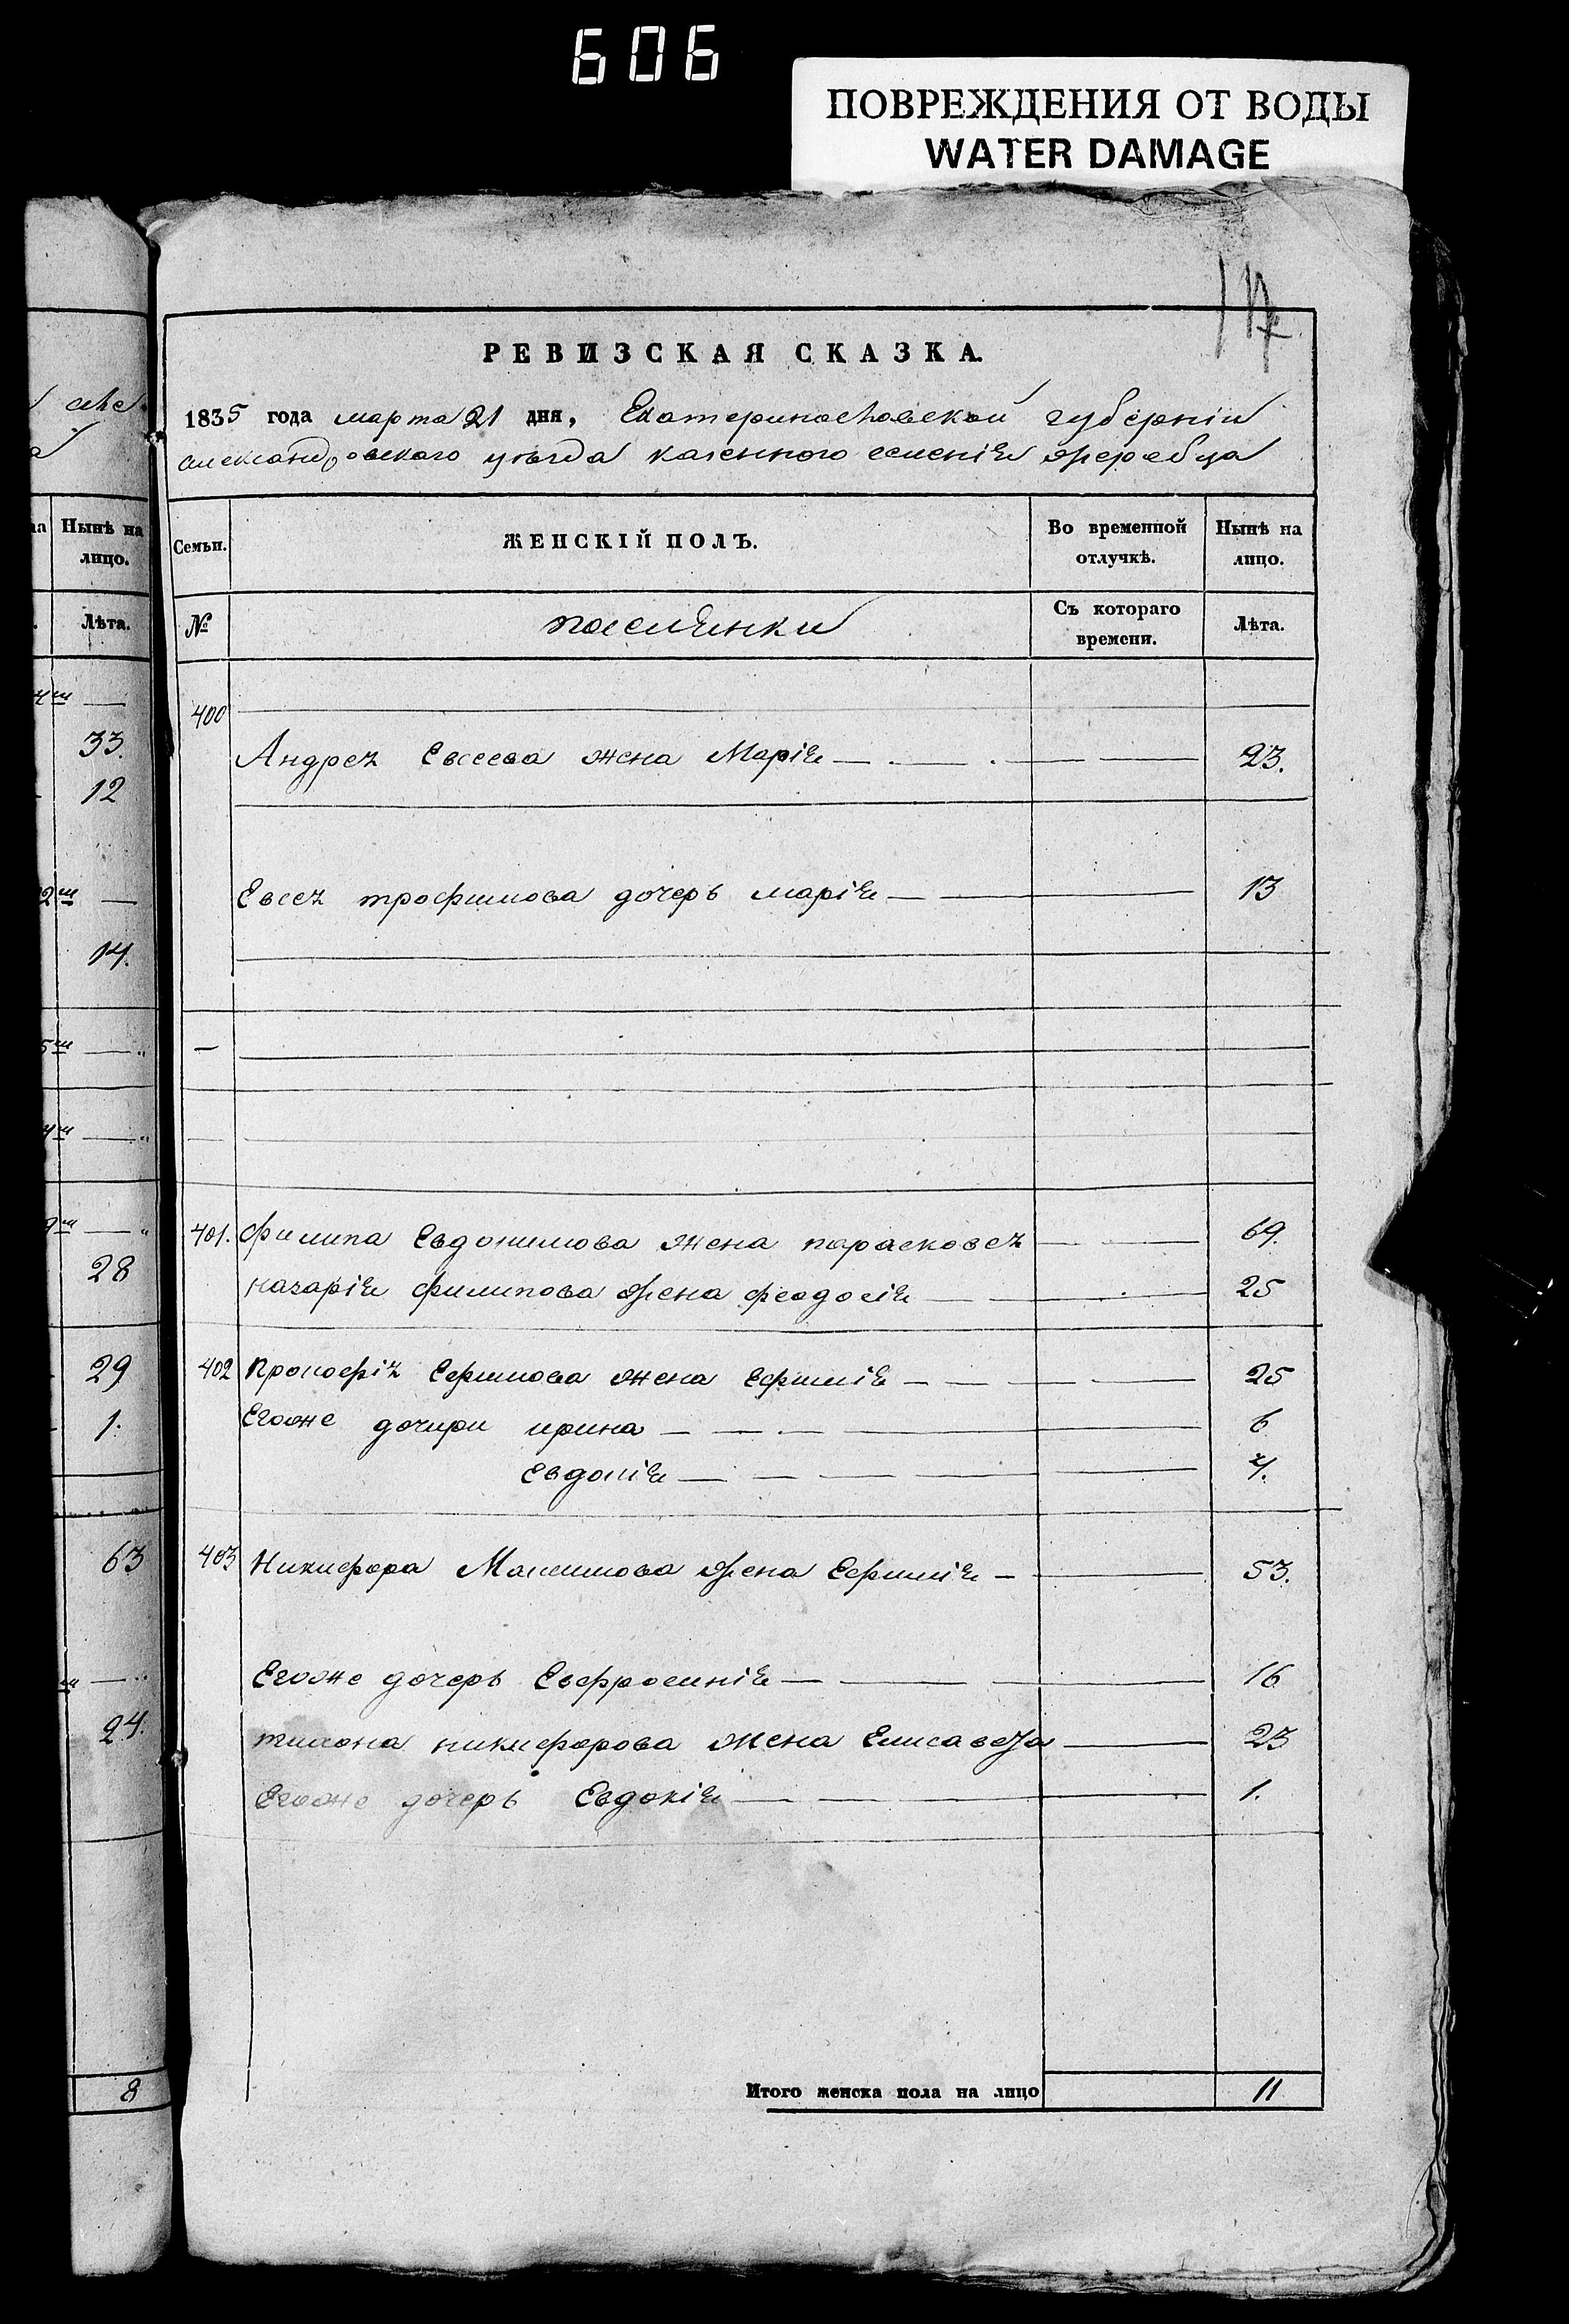 606
ПОВРЕЖДЕНИЯ ОТ ВОДЫ
WATER DAMAGE
17
РЕВИЗСКАЯ СКАЗКА.
1835 года марта 21 дня, Екатеринославской губерніи
александровского уѣзда казенного селенія жеребца
на Нынѣ на лицо.
Семьи. ЖЕНСКІЙ ПОЛЪ. Во временной отлучкѣ. Нынѣ на лицо.
Лѣта.
№ поселянки Съ котораго времени. Лѣта.
400
33.
Андрея Евсеева жена Марія 23.
12
Евсея трофимова дочерь марія 13
14.
401. Филипа Евдокимова жена парасковея 69.
28
назарія филипова жена феодосія 25
29
402 Прокофія Ефимова жена Ефимія 25
1.
Егоже дочири ирина 6
Евдокія 4.
63
403 Никифора Максимова жена Ефимія 53.
Егоже дочерь Евфросинія 16
24.
тихона никифорова жена Елисавета 23
Егоже дочерь Евдокія 1.
8
Итого женска пола на лицо 11